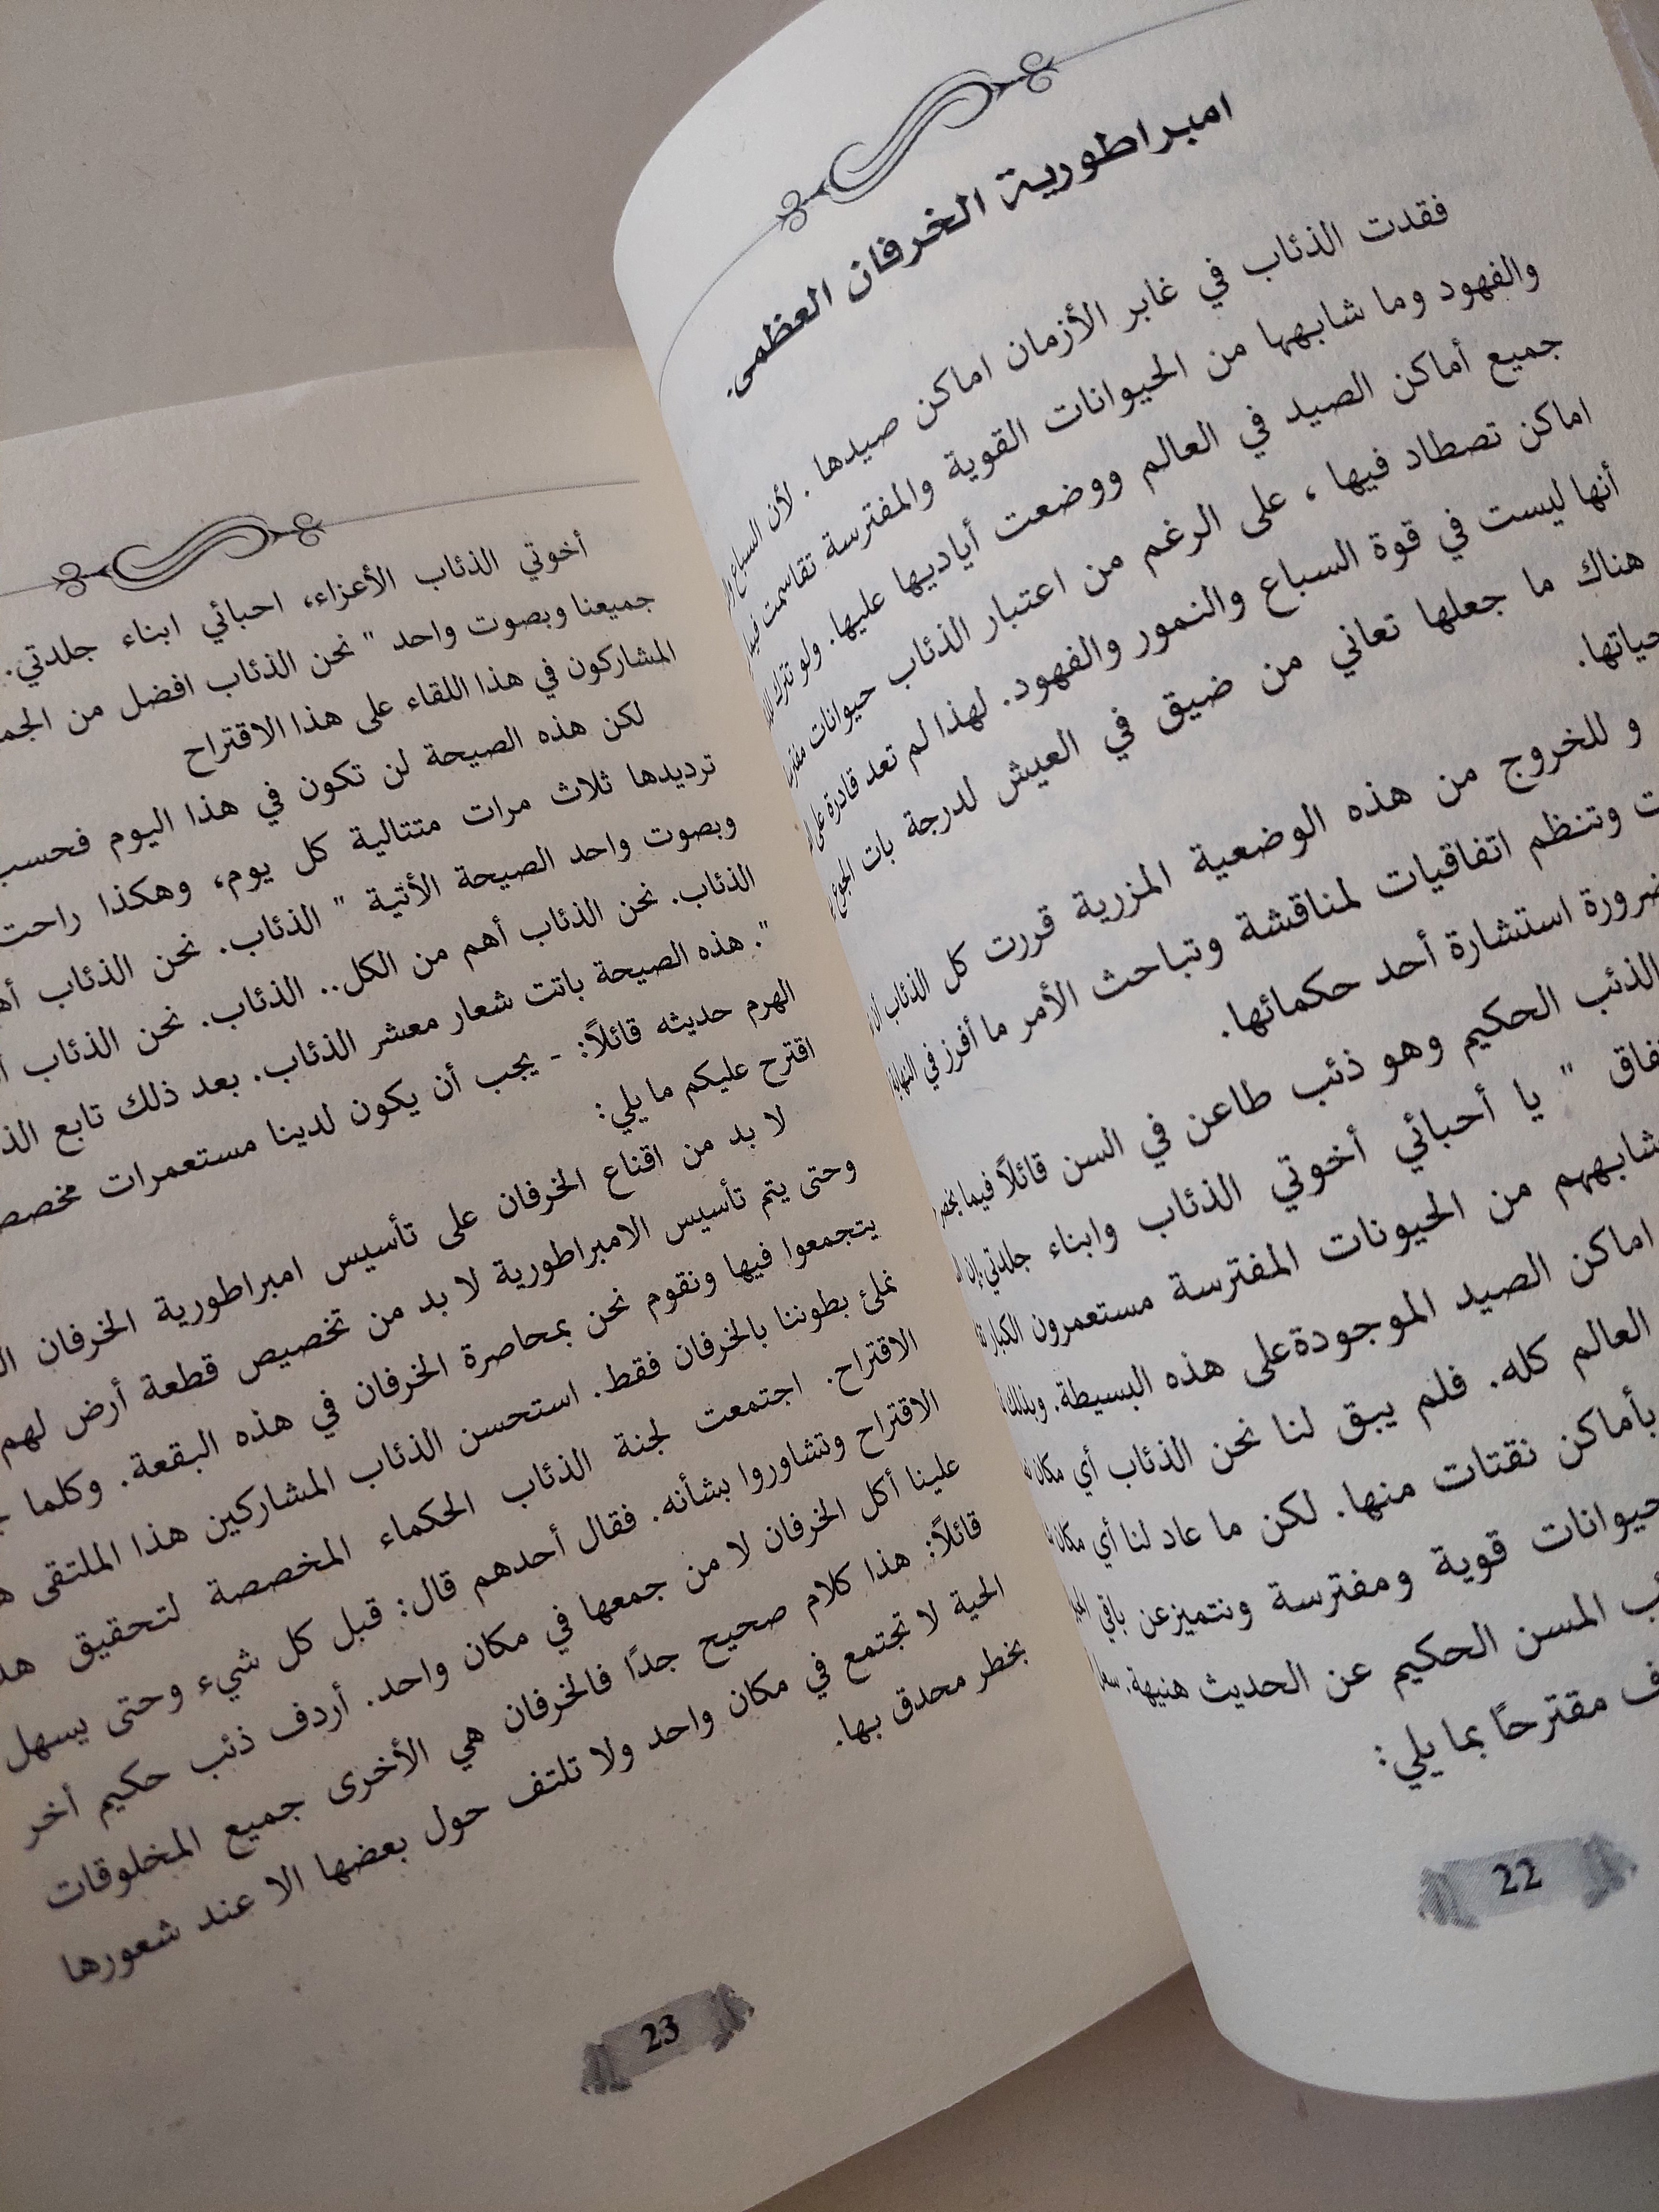 امبراطورية الخرفان العظمى.
فقدت الذئاب في غابر الأزمان اماكن صيدها . لأن السباع
والفهود وما شابهها من الحيوانات القوية والمفترسة تقاسمت
جميع أماكن الصيد في العالم ووضعت أياديها عليها. ولو تترك
اماكن تصطاد فيها ، على الرغم من اعتبار الذئاب حيوانات
أنها ليست في قوة السباع والنمور والفهود. لهذا لم تعد قادرة على
هناك ما جعلها تعاني من ضيق في العيش لدرجة بات الجوع
حياتها.
و للخروج من هذه الوضعية المزرية قررت كل الذئاب
وتنظم اتفاقيات لمناقشة وتباحث الأمر ما أفرز في النهاية
ضرورة استشارة أحد حكمائها.
الذئب الحكيم وهو ذئب طاعن في السن قائلاً فيما
" يا أحبائي أخوتي الذئاب وابناء جلدتي. إن
من الحيونات المفترسة مستعمرون الكبار
اماكن الصيد الموجودة على هذه البسيطة. وبذلك
العالم كله. فلم يبق لنا نحن الذئاب أي مكان
بأماكن نقتات منها. لكن ما عاد لنا أي مكان
حيوانات قوية ومفترسة ونتميز عن باقي
المسن الحكيم عن الحديث هنيهة.
مقترحًا بما يلي:
22
أخوتي الذئاب الأعزاء، احبائي ابناء جلدتي.
جميعنا وبصوت واحد " نحن الذئاب افضل من
المشاركون في هذا اللقاء على هذا الاقتراح
لكن هذه الصيحة لن تكون في هذا اليوم فحسب
ترديدها ثلاث مرات متتالية كل يوم، وهكذا راحت
وبصوت واحد الصيحة الأتية " الذئاب. نحن الذئاب
الذئاب. نحن الذئاب أهم من الكل.. الذئاب. نحن الذئاب
". هذه الصيحة باتت شعار معشر الذئاب. بعد ذلك تابع
الهرم حديثه قائلاً: - يجب أن يكون لدينا مستعمرات
اقترح عليكم ما يلي:
لا بد من اقناع الخرفان على تأسيس امبراطورية الخرفان
وحتى يتم تأسيس الامبراطورية لا بد من تخصيص قطعة أرض لهم
يتجمعوا فيها ونقوم نحن بمحاصرة الخرفان في هذه البقعة. وكلما
نملئ بطوننا بالخرفان فقط. استحسن الذئاب المشاركين هذا الملتقى
الاقتراح. اجتمعت لجنة الذئاب الحكماء المخصصة لتحقيق
الاقتراح وتشاوروا بشأنه. فقال أحدهم قال: قبل كل شيء وحتى يسهل
علينا أكل الخرفان لا من جمعها في مكان واحد. أردف ذئب حكيم أخر
قائلاً: هذا كلام صحيح جدًا فالخرفان هي الأخرى جميع المخلوقات
الحية لا تجتمع في مكان واحد ولا تلتف حول بعضها الا عند شعورها
بخطر محدق بها.
23